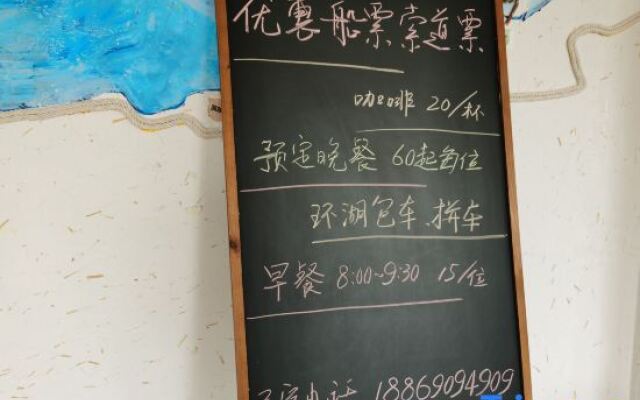 优惠船票索道票
咖啡 20/杯
预定晚餐 60起每位
环湖包车、拼车
早餐 8:00~9:30 15/位
电话 18869094909